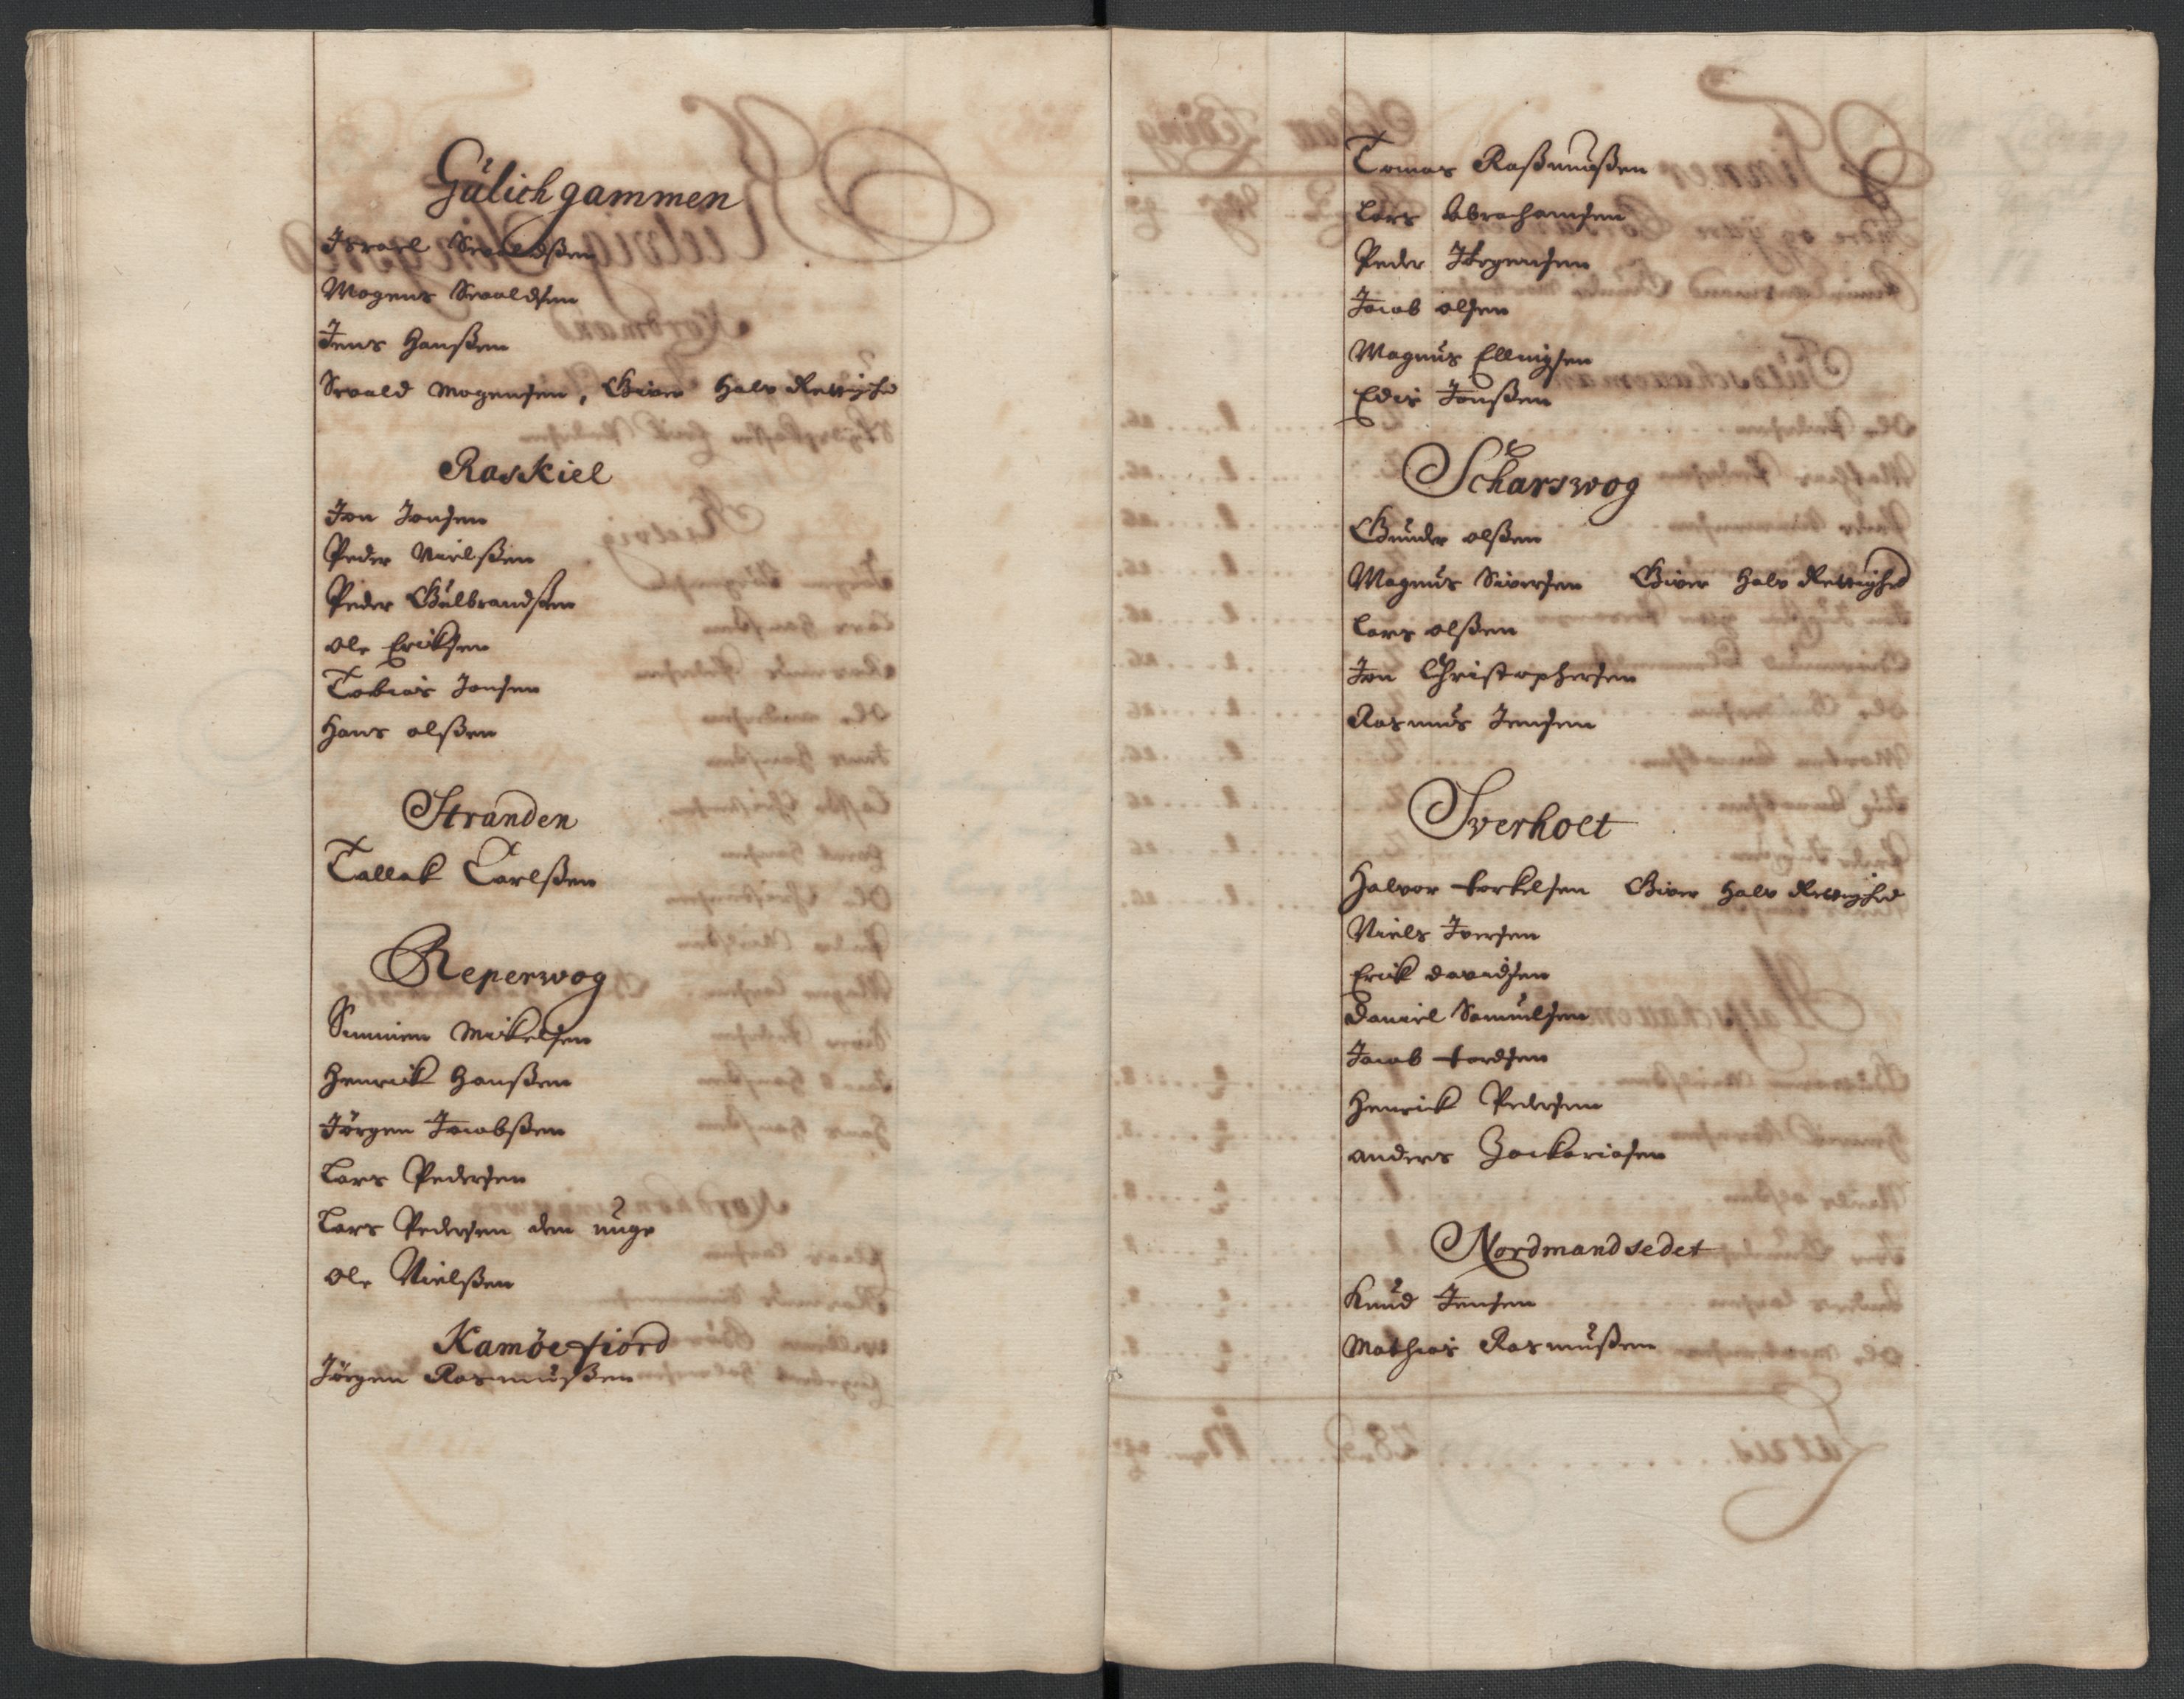 Gülichgammen
Israel Sevaldßen
Mogens Sevaldsen
Jens Hanßen
Sevald Mogensen, Giver halv Rettighed
Raskiel
Jon Jonsen
Peder Nielsßen
Peder Gülbrandsen
Ole Eriksen
Tobias Jonsen
Hans olßen
Stranden
Tallak Carlßen
Reperwog
Simmien Mikelsen
Henrick Hanßen
Jörgen Jacobßen
Lars Pedersen
Lars Pedersen den unge
Ole Nielßen
Kamöefiord
Jörgen Rasmußen
Tomas Raßmußen
Lars Abrahamsen
Peder Jörgensen
Jacob olsen
Magnus Ellingsen
Edis Jonßen
Scharswog
Gunder olßen
Magnus Siversen Giver halv Rettighed
Lars olßen
Jon Christophersen
Rasmus Jensen
Sverholt
Halvor torkelsen Giver halv Rettighed
Niels Iversen
Erick davidsen
Daniel Samuelsen
Jacob tordsen
Henrick Pedersen
anders Zackariasen
Nordmandsedet
Knud Jensen
Mathias Rasmußen